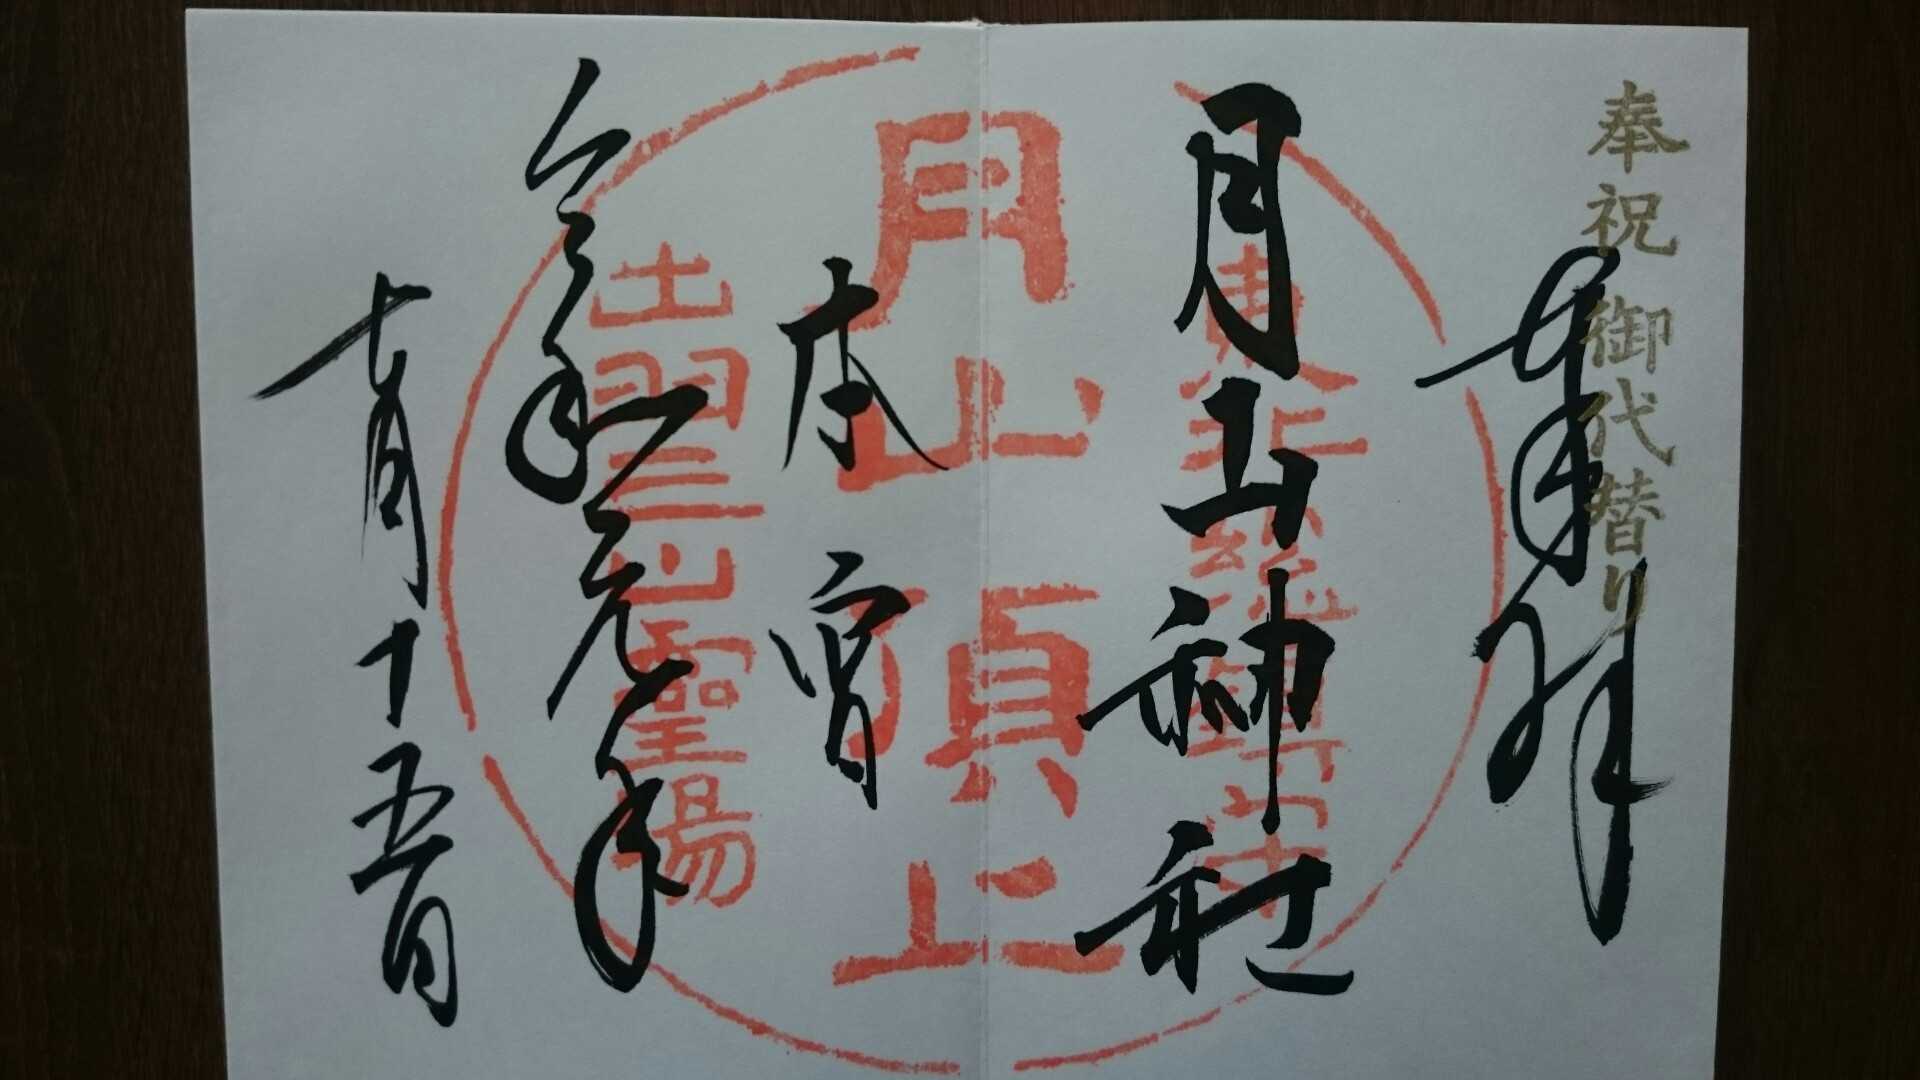 奉祝 御代替り
奉拝
月山神社
本宮
令和元年
七月十五日
東北総鎮守
月山頂上
出羽三山霊場